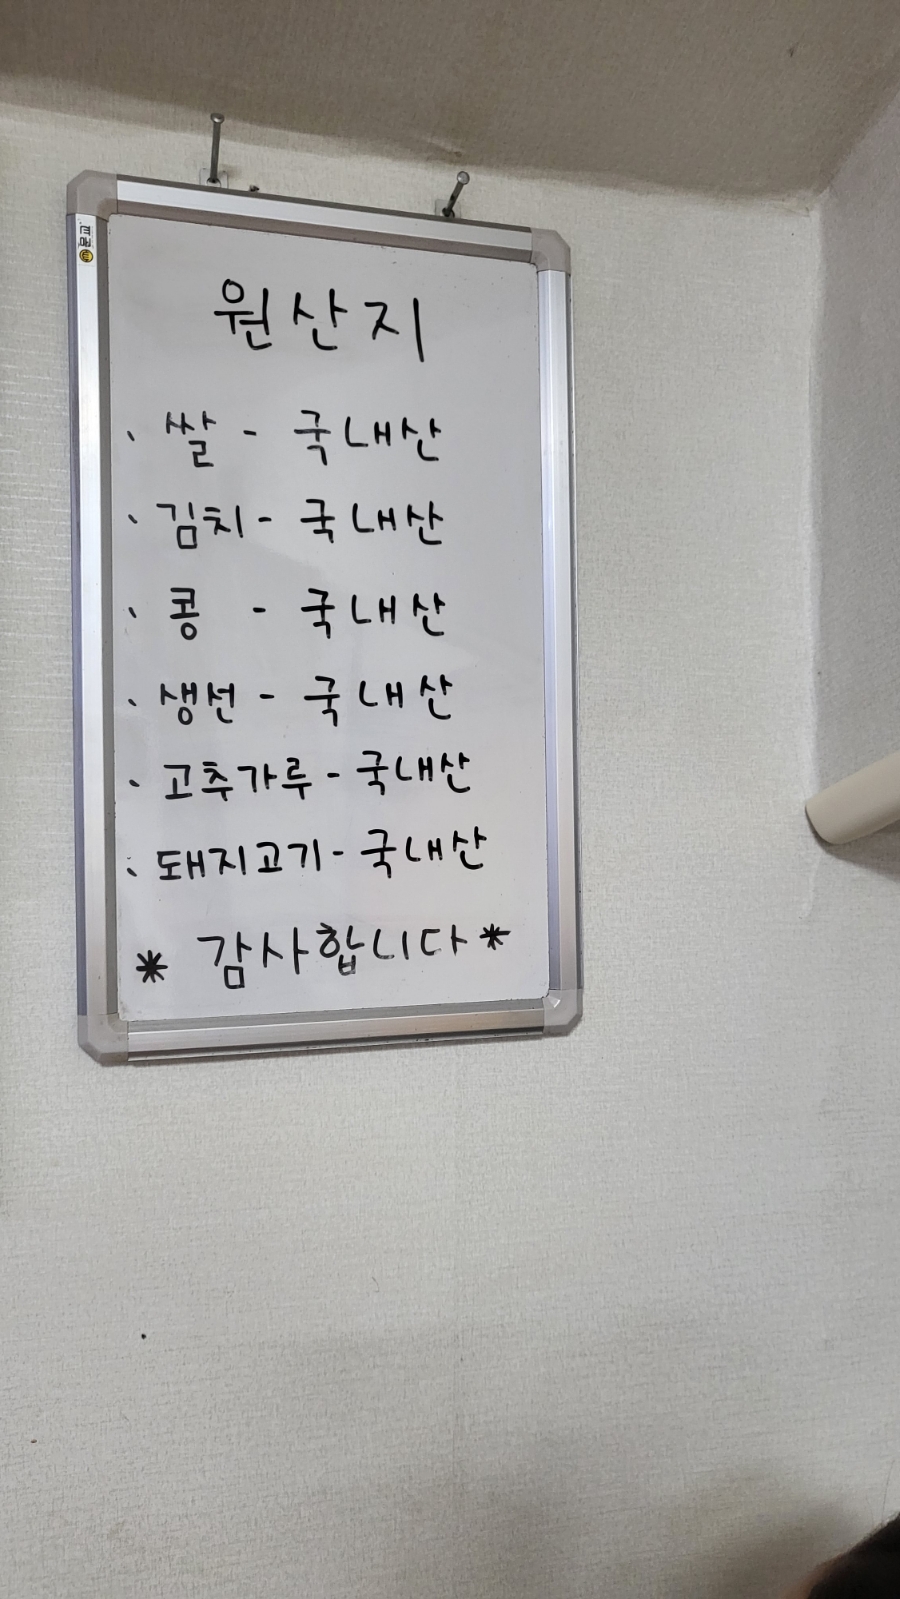 원산지
· 쌀 - 국내산
· 김치 - 국내산
· 콩 - 국내산
· 생선 - 국내산
· 고추가루 - 국내산
· 돼지고기 - 국내산
* 감사합니다 *